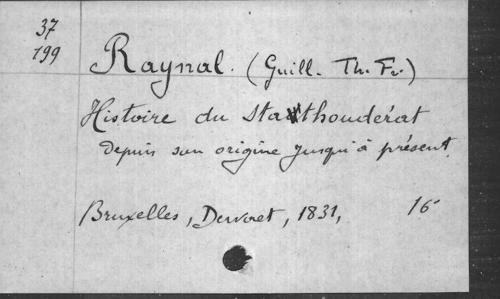 37
199
Raynal. (Guill. Th. Fr.)
Histoire du Stathoudérat
depuis son origine jusqu'à présent.
Bruxelles, Dervoet, 1831, 16°